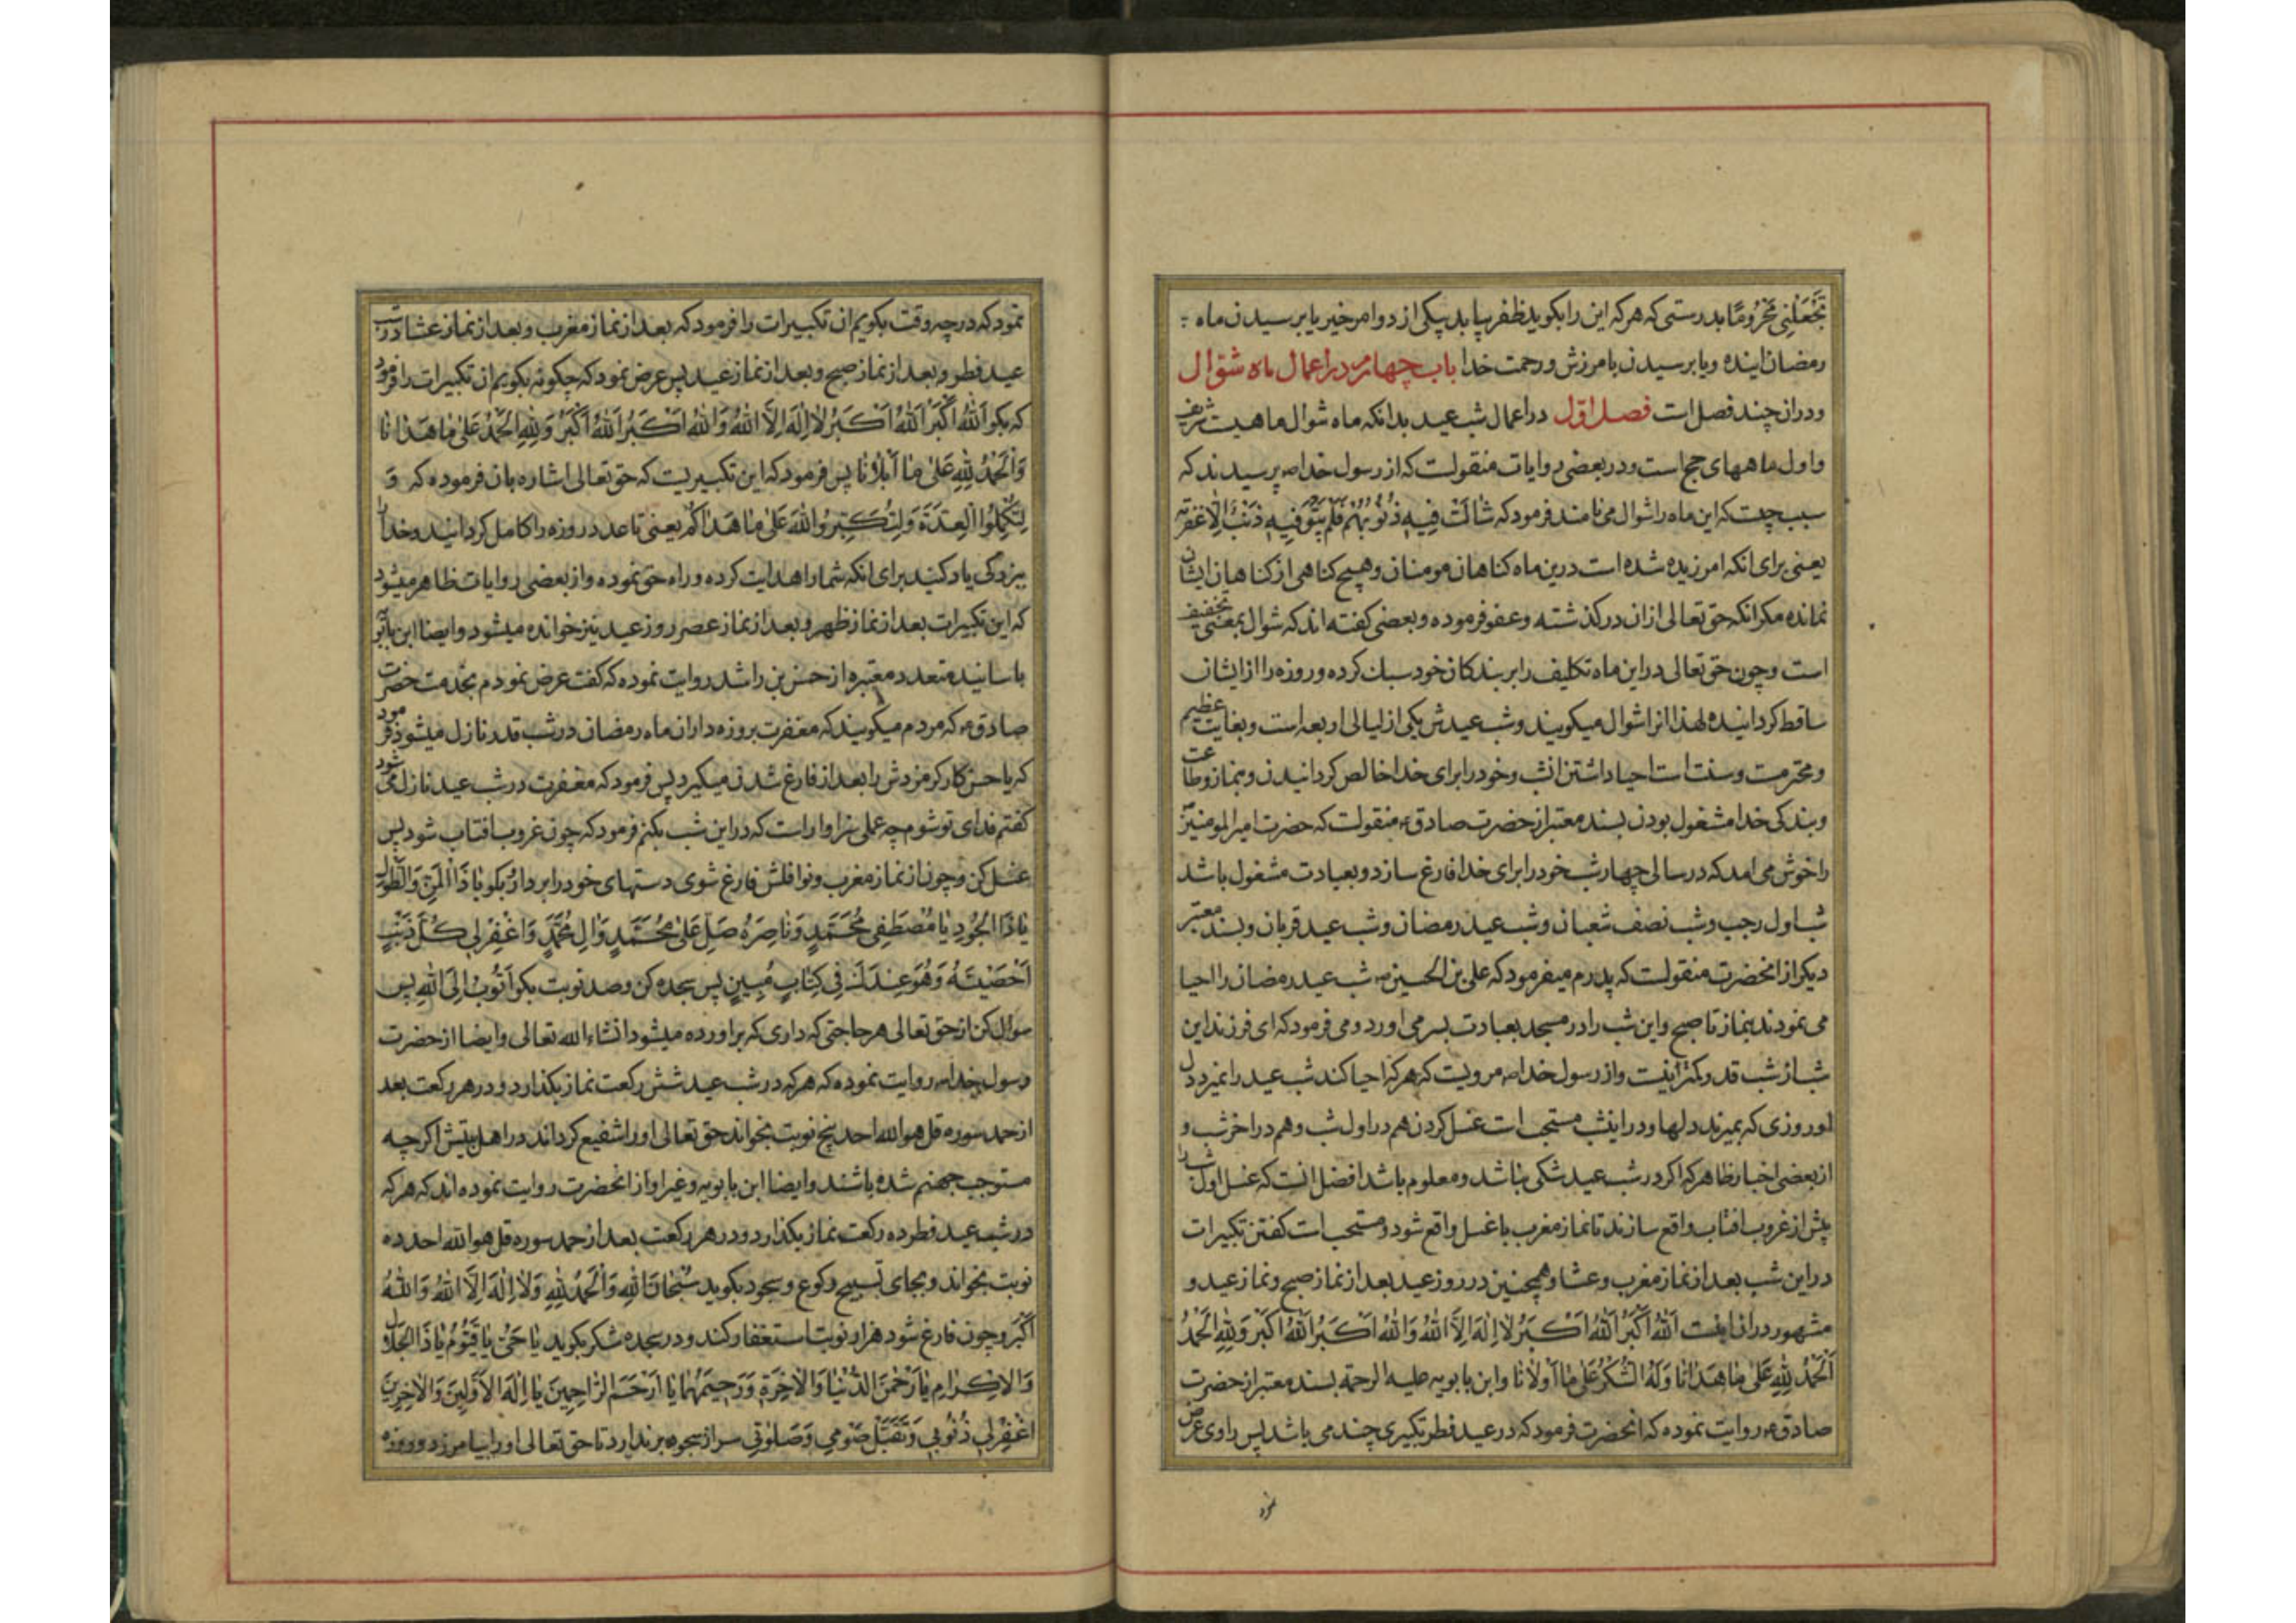 تَجْعَلْنِی مَحْرُومًا بدرستی که هر که این را بکوید ظفر یابد بیکی از دو امر خیر یا برسیدن ماه
رمضان اینده و یا برسیدن بامرزش و رحمت خدا باب چهارم در اعمال ماه شوّال
و دران چند فصل است فصل اوّل در اعمال شب عید بدانکه ماه شوال ماهیست شریف
و اول ماههای حج است و در بعضی روایات منقولست که از رسول خدا ص پرسیدند که
سبب چیست که این ماه را شوال می نامند فرمود که شٰالَتْ فِیهِ ذُنُوبُهُمْ فَلَمْ یَبْقَ فِیهِ ذَنْبٌ اِلّٰا غَفَرَتْهُ
یعنی برای انکه امرزیده شده است درین ماه کناهان مومنان و هیچ کناهی از کناهان ایشان
نمانده مکر انکه حق تعالی ازان در کذشته و عفو فرموده و بعضی کفته اند که شوال بمعنی تخفیف
است و چون حق تعالی در این ماه تکلیف را بر بندکان خود سبک کرده و روزه را از ایشان
ساقط کردانیده لهذا انرا شوال میکویند و شب عیدش یکی از لیالی اربعه است و بغایت عظیم
و محترمست و سنت است احیا داشتن انشب و خود را برای خدا خالص کردانیدن و بنماز و طاعت
و بندکی خدا مشغول بودن بسند معتبر از حضرت صادق ع منقولست که حضرت امیر المومنین
را خوش می امد که در سالی چهار شب خود را برای خدا فارغ سازد و بعبادت مشغول باشد
شب اول رجب و شب نصف شعبان و شب عید رمضان و شب عید قربان و بسند معتبر
دیکر از انحضرت منقولست که پدرم میفرمود که علی بن الحسین ع شب عید رمضان را احیا
می نمودند بنماز تا صبح و این شب را در مسجد بعبادت بسر می اورد و می فرمود که ای فرزند این
شب از شب قدر کمتر نیست و از رسول خدا ص مرویست که هر که احیا کند شب عید را نمیرد دل
او روزی که بمیرند دلها و در اینشب مستحب است غسل کردن هم در اول شب و هم در اخر شب و
از بعضی اخبار ظاهر که اکر در شب عید شکی نباشد و معلوم باشد افضل انست که غسل اول شب را
پیش از غروب افتاب واقع سازند تا نماز مغرب با غسل واقع شود و مستحب است کفتن تکبیرات
در این شب بعد از نماز مغرب و عشا و همچنین در روز عید بعد از نماز صبح و نماز عید و
مشهور دران اینست اَللّٰهُ اَکْبَرُ اَللّٰهُ اَکْبَرُ لاٰ اِلٰهَ اِلَّا اللّٰهُ وَاللّٰهُ اَکْبَرُ اَللّٰهُ اَکْبَرُ وَلِلّٰهِ الْحَمْدُ
اَلْحَمْدُ لِلّٰهِ عَلیٰ مٰا هَدٰانٰا وَلَهُ الشُّکْرُ عَلیٰ مٰا اَوْلاٰنٰا و ابن بابویه علیه الرحمة بسند معتبر از حضرت
صادق ع روایت نموده که انحضرت فرمود که در عید فطر تکبیری چند می باشد پس راوی عرض
نمود
نمود که در چه وقت بکویم ان تکبیرات را فرمود که بعد از نماز مغرب و بعد از نماز عشا در شب
عید فطر و بعد از نماز صبح و بعد از نماز عید پس عرض نمود که چکونه بکویم ان تکبیرات را فرمود
که بکو اَللّٰهُ اَکْبَرُ اَللّٰهُ اَکْبَرُ لاٰ اِلٰهَ اِلَّا اللّٰهُ وَاللّٰهُ اَکْبَرُ اَللّٰهُ اَکْبَرُ وَلِلّٰهِ الْحَمْدُ عَلیٰ مٰا هَدٰانٰا
وَالْحَمْدُ لِلّٰهِ عَلیٰ مٰا اَبْلاٰنٰا پس فرمود که این تکبیریست که حق تعالی اشاره بان فرموده که وَ
لِتُکْمِلُوا الْعِدَّةَ وَلِتُکَبِّرُوا اللّٰهَ عَلیٰ مٰا هَدٰاکُمْ یعنی تا عدد روزه را کامل کردانید و خدا را
ببزرکی یاد کنید برای انکه شما را هدایت کرده و راه حق نموده و از بعضی روایات ظاهر میشود
که این تکبیرات بعد از نماز ظهر و بعد از نماز عصر روز عید نیز خوانده میشود و ایضا ابن بابویه
باسانید متعدد معتبره از حسن بن راشد روایت نموده که کفت عرض نمودم بخدمت حضرت
صادق ع که مردم میکویند که مغفرت بروزه داران ماه رمضان در شب قدر نازل میشود فرمود
که یا حسن کارکر مزدش را بعد از فارغ شدن میکیرد پس فرمود که مغفرت در شب عید نازل می شود
کفتم فدای تو شوم چه عملی سزاوار است که در این شب بکنم فرمود که چون غروب افتاب شود پس
غسل کن و چون از نماز مغرب و نوافلش فارغ شوی دستهای خود را بردار و بکو یٰا ذَا الْمَنِّ وَالطَّوْلِ
یٰا ذَا الْجُودِ یٰا مُصْطَفِیَ مُحَمَّدٍ وَنٰاصِرَهُ صَلِّ عَلیٰ مُحَمَّدٍ وَاٰلِ مُحَمَّدٍ وَاغْفِرْ لِی کُلَّ ذَنْبٍ
اَحْصَیْتَهُ وَهُوَ عِنْدَکَ فِی کِتٰابٍ مُبِینٍ پس سجده کن و صد نوبت بکو اَتُوبُ اِلَی اللّٰهِ پس
سوال کن از حق تعالی هر حاجتی که داری که براورده میشود انشاء الله تعالی و ایضا از حضرت
رسول خدا ص روایت نموده که هر که در شب عید شش رکعت نماز بکذارد و در هر رکعت بعد
از حمد سوره قل هو الله احد پنج نوبت بخواند حق تعالی او را شفیع کرداند در اهل بیتش اکر چه
مستوجب جهنم شده باشند و ایضا ابن بابویه و غیر او از انحضرت روایت نموده اند که هر که
در شب عید فطر ده رکعت نماز بکذارد و در هر رکعت بعد از حمد سوره قل هو الله احد ده
نوبت بخواند و بجای تسبیح رکوع و سجود بکوید سُبْحٰانَ اللّٰهِ وَالْحَمْدُ لِلّٰهِ وَلاٰ اِلٰهَ اِلَّا اللّٰهُ وَاللّٰهُ
اَکْبَرُ و چون فارغ شود هزار نوبت استغفار کند و در سجده شکر بکوید یٰا حَیُّ یٰا قَیُّومُ یٰا ذَا الْجَلاٰلِ
وَالْاِکْرٰامِ یٰا رَحْمٰنَ الدُّنْیٰا وَالْاٰخِرَةِ وَرَحِیمَهُمٰا یٰا اَرْحَمَ الرّٰاحِمِینَ یٰا اِلٰهَ الْاَوَّلِینَ وَالْاٰخِرِینَ
اغْفِرْ لِی ذُنُوبِی وَتَقَبَّلْ صَوْمِی وَصَلوٰتِی سر از سجود برندارد تا حق تعالی او را بیامرزد و روزه